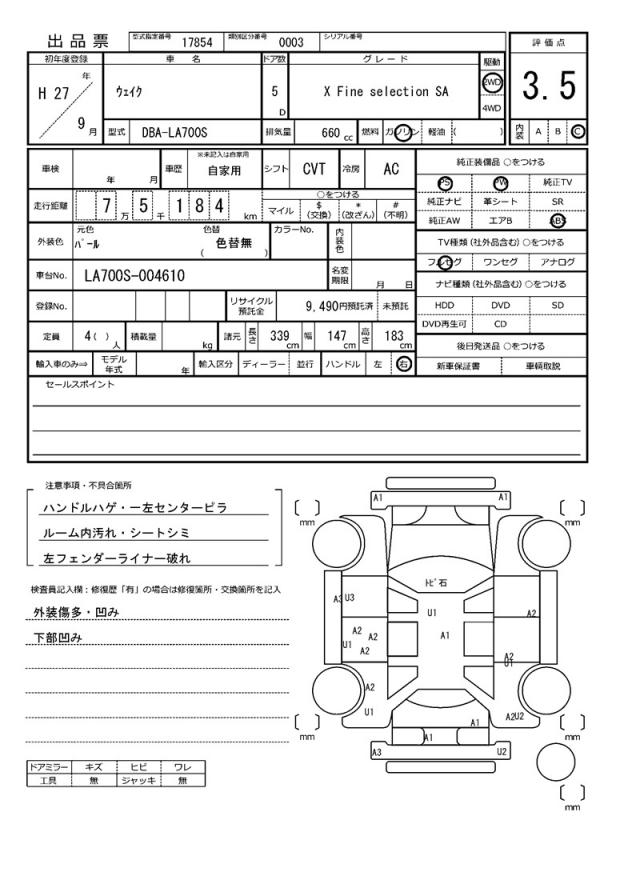 出品票 型式指定番号 17854 類別区分番号 0003 シリアル番号
初年度登録 車名 ドア数 グレード 駆動 評価点
H 27 年 ウェイク 5 D X Fine selection SA 2WD 4WD 3.5
9 月 型式 DBA-LA700S 排気量 660 cc 燃料 ガソリン 軽油 ( ) 内装 A B C
車検 年 月 車歴 ※未記入は自家用 自家用 シフト CVT 冷房 AC
純正装備品 ○をつける
PS PW 純正TV
走行距離 7 万 5 千 1 8 4 km ○をつける
マイル $(交換) *(改ざん) #(不明)
純正ナビ 革シート SR
純正AW エアB ABS
外装色 元色 パール 色替 ( 色替無 ) カラーNo. 内装色
TV種類(社外品含む)○をつける
フルセグ ワンセグ アナログ
車台No. LA700S-004610 名変期限 月 日
ナビ種類(社外品含む)○をつける
登録No. リサイクル預託金 9,490円預託済 未預託
HDD DVD SD
DVD再生可 CD
定員 4( ) 人 積載量 kg 諸元 長さ 339 cm 幅 147 cm 高さ 183 cm
後日発送品 ○をつける
輸入車のみ⇒ モデル年式 年 輸入区分 ディーラー 並行 ハンドル 左 右
新車保証書 車輌取説
セールスポイント
注意事項・不具合箇所
ハンドルハゲ・一左センターピラ
ルーム内汚れ・シートシミ
左フェンダーライナー破れ
検査員記入欄：修復歴「有」の場合は修復箇所・交換箇所を記入
外装傷多・凹み
下部凹み
ドアミラー キズ ヒビ ワレ
工具 無 ジャッキ 無
A1 A1
[ ] mm [ ] mm
トビ石
A3 U3
U1
A2
A2
A2
U1
A2
A1
A2
U1
A2
U1
A1
A2U2
[ ] mm [ ] mm
A1
A3 U2
[ ] mm